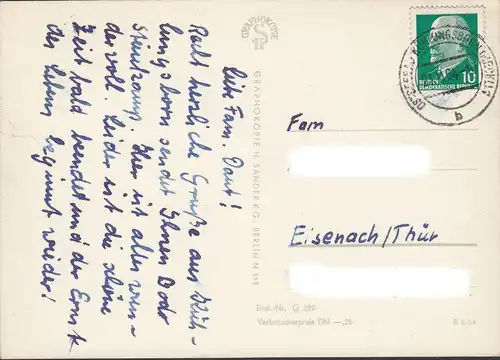 Liebe Fam. Daut!
Recht herzliche Grüße aus Küh-
lungsborn sendet Ihnen Dodo
Steinkamp. Hier ist alles wun-
dervoll. Leider ist die schöne
Zeit bald beendet und der Ernst
des Lebens beginnt wieder!
GRAPHOKOPIE
GRAPHOKOPIE H. SANDER K.G., BERLIN N 113
DEUTSCHE
DEMOKRATISCHE REPUBLIK
10
OSTSEEBAD KÜHLUNGSBORN
b
Fam
Eisenach/Thür
Best.-Nr. G 280
Verbraucherpreis DM —,25